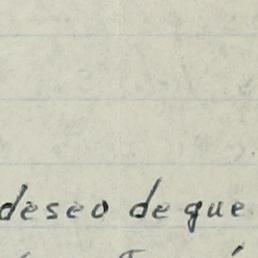 deseo de que